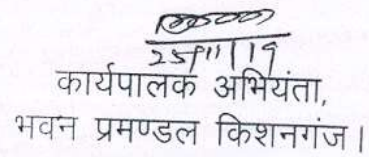 25/11/19
कार्यपालक अभियंता,
भवन प्रमण्डल किशनगंज।